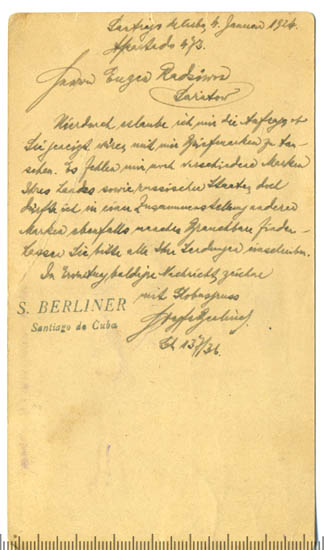 Santiago de Cuba, 4. Januar 1926.
Apartado 473.
Herrn Eugen
Saratow
Hierdurch erlaube ich mir die Anfrage ob
Sie geneigt wären, mit mir Briefmarken zu tau-
schen. Es fehlen mir noch verschiedene Marken
Ihres Landes sowie russischer Staaten, doch
dürfte ich in einer Zusammenstellung anderer
Marken ebenfalls manches Brauchbare finden.
Lassen Sie bitte alle Ihre Sendungen einschreiben.
In Erwartung baldiger Nachricht, zeichne
mit
S. BERLINER
Santiago de Cuba
Berliner